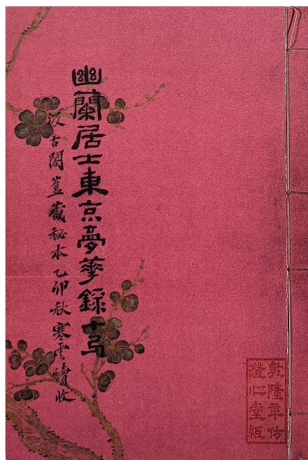 幽蘭居士東京夢華錄十弓
汲古閣舊藏秘本乙卯秋寒雲續收
乾隆年仿
澄心堂紙